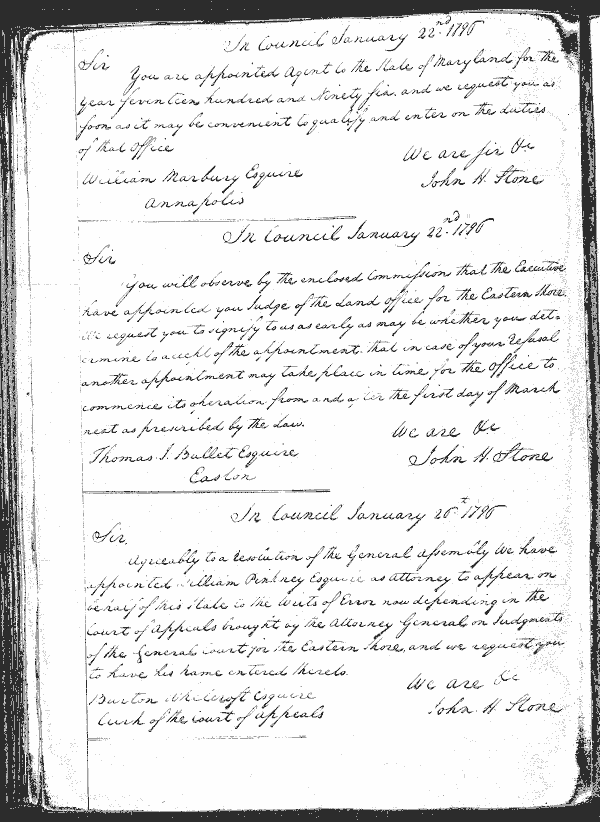 In Council January 22nd. 1796
Sir
You are appointed Agent to the State of Maryland for the
year Seventeen hundred and Ninety six, and we request you as
soon as it may be convenient to qualify and enter on the duties
of that Office
We are sir &c
William Marbury Esquire
John H. Stone
Annapolis
In Council January 22nd. 1796
Sir
You will observe by the enclosed Commission that the Executive
have appointed you Judge of the Land office for the Eastern Shore.
We request you to signify to us as early as may be whether you det-
ermine to accept of the appointment, that in case of your Refusal
another appointment may take place in time for the Office to
commence its operation from and after the first day of March
next as prescribed by the Law.
We are &c
Thomas J. Bullet Esquire
John H. Stone
Easton
In Council January 26t. 1796
Sir,
Agreeably to a Resolution of the General Assembly We have
appointed William Pinkney Esquire as attorney to appear on
behalf of this State to the Writs of Error now depending in the
Court of Appeals brought by the Attorney General on Judgments
of the General Court for the Eastern Shore, and we request you
to have his name entered thereto.
We are &c
Burton Whetcroft Esquire
John H. Stone
Clerk of the Court of Appeals